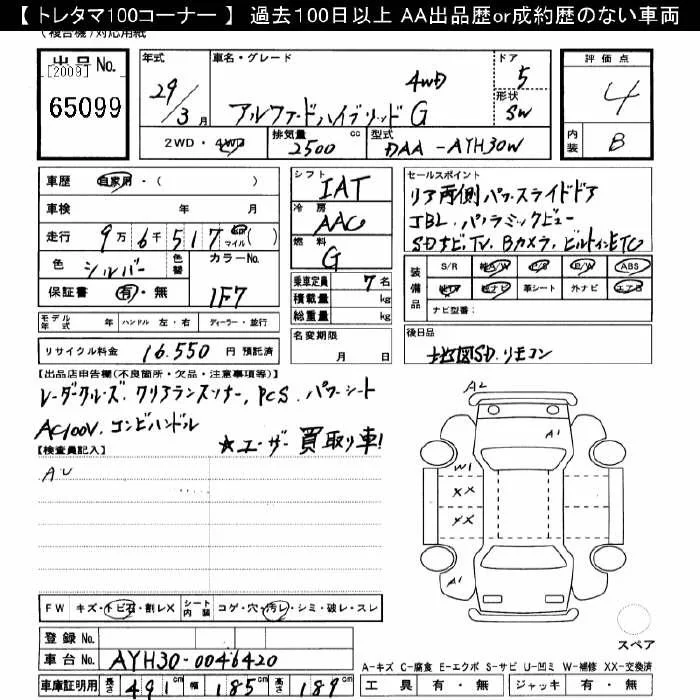 【 トレタマ100コーナー 】 過去100日以上 AA出品歴or成約歴のない車両
(複合機)対応用紙
出品 No.
[2009]
65099
年式 車名・グレード ドア 評価点
29/3月 アルファードハイブリッド G 4WD 5 4
形状 SW
2WD・4WD 排気量 2500 cc 型式 DAA-AYH30W 内装 B
車歴 自家用・( )
車検 年 月
走行 9万6千517 マイル( )
色 シルバー 色替 カラーNo. 1F7
保証書 有・無
モデル年式 年 ハンドル 左・右 ディーラー・並行
リサイクル料金 16.550 円 預託済
シフト IAT
冷房 AAC
燃料 G
乗車定員 7名
積載量 kg
総重量 kg
名変期限 月 日
セールスポイント
リア両側パワースライドドア
JBL.パノラミックビュー
SDナビ,TV,Bカメラ,ビルトインETC
装備品 S/R 純A/W P/S P/W ABS
純TV 純ナビ 革シート 外ナビ エアB
ナビ型番:
後日品
地図SD.リモコン
【出品店申告欄(不良箇所・欠品・注意事項等)】
レーダークルーズ.クリアランスソナー,PCS.パワーシート
AC100V.コンビハンドル
★ユーザー買取り車!
【検査員記入】
AU
A2
A1
W1
XX
XX
A1
FW キズ・トビ石・割レX シート内装 コゲ・穴・汚レ・シミ・破レ・スレ
登録 No.
車台 No. AYH30-0046420
車庫証明用 長さ 491 cm 幅 185 cm 高さ 189 cm
スペア
A-キズ C-腐食 E-エクボ S-サビ U-凹ミ W-補修 XX-交換済
工具 有・無 ジャッキ 有・無